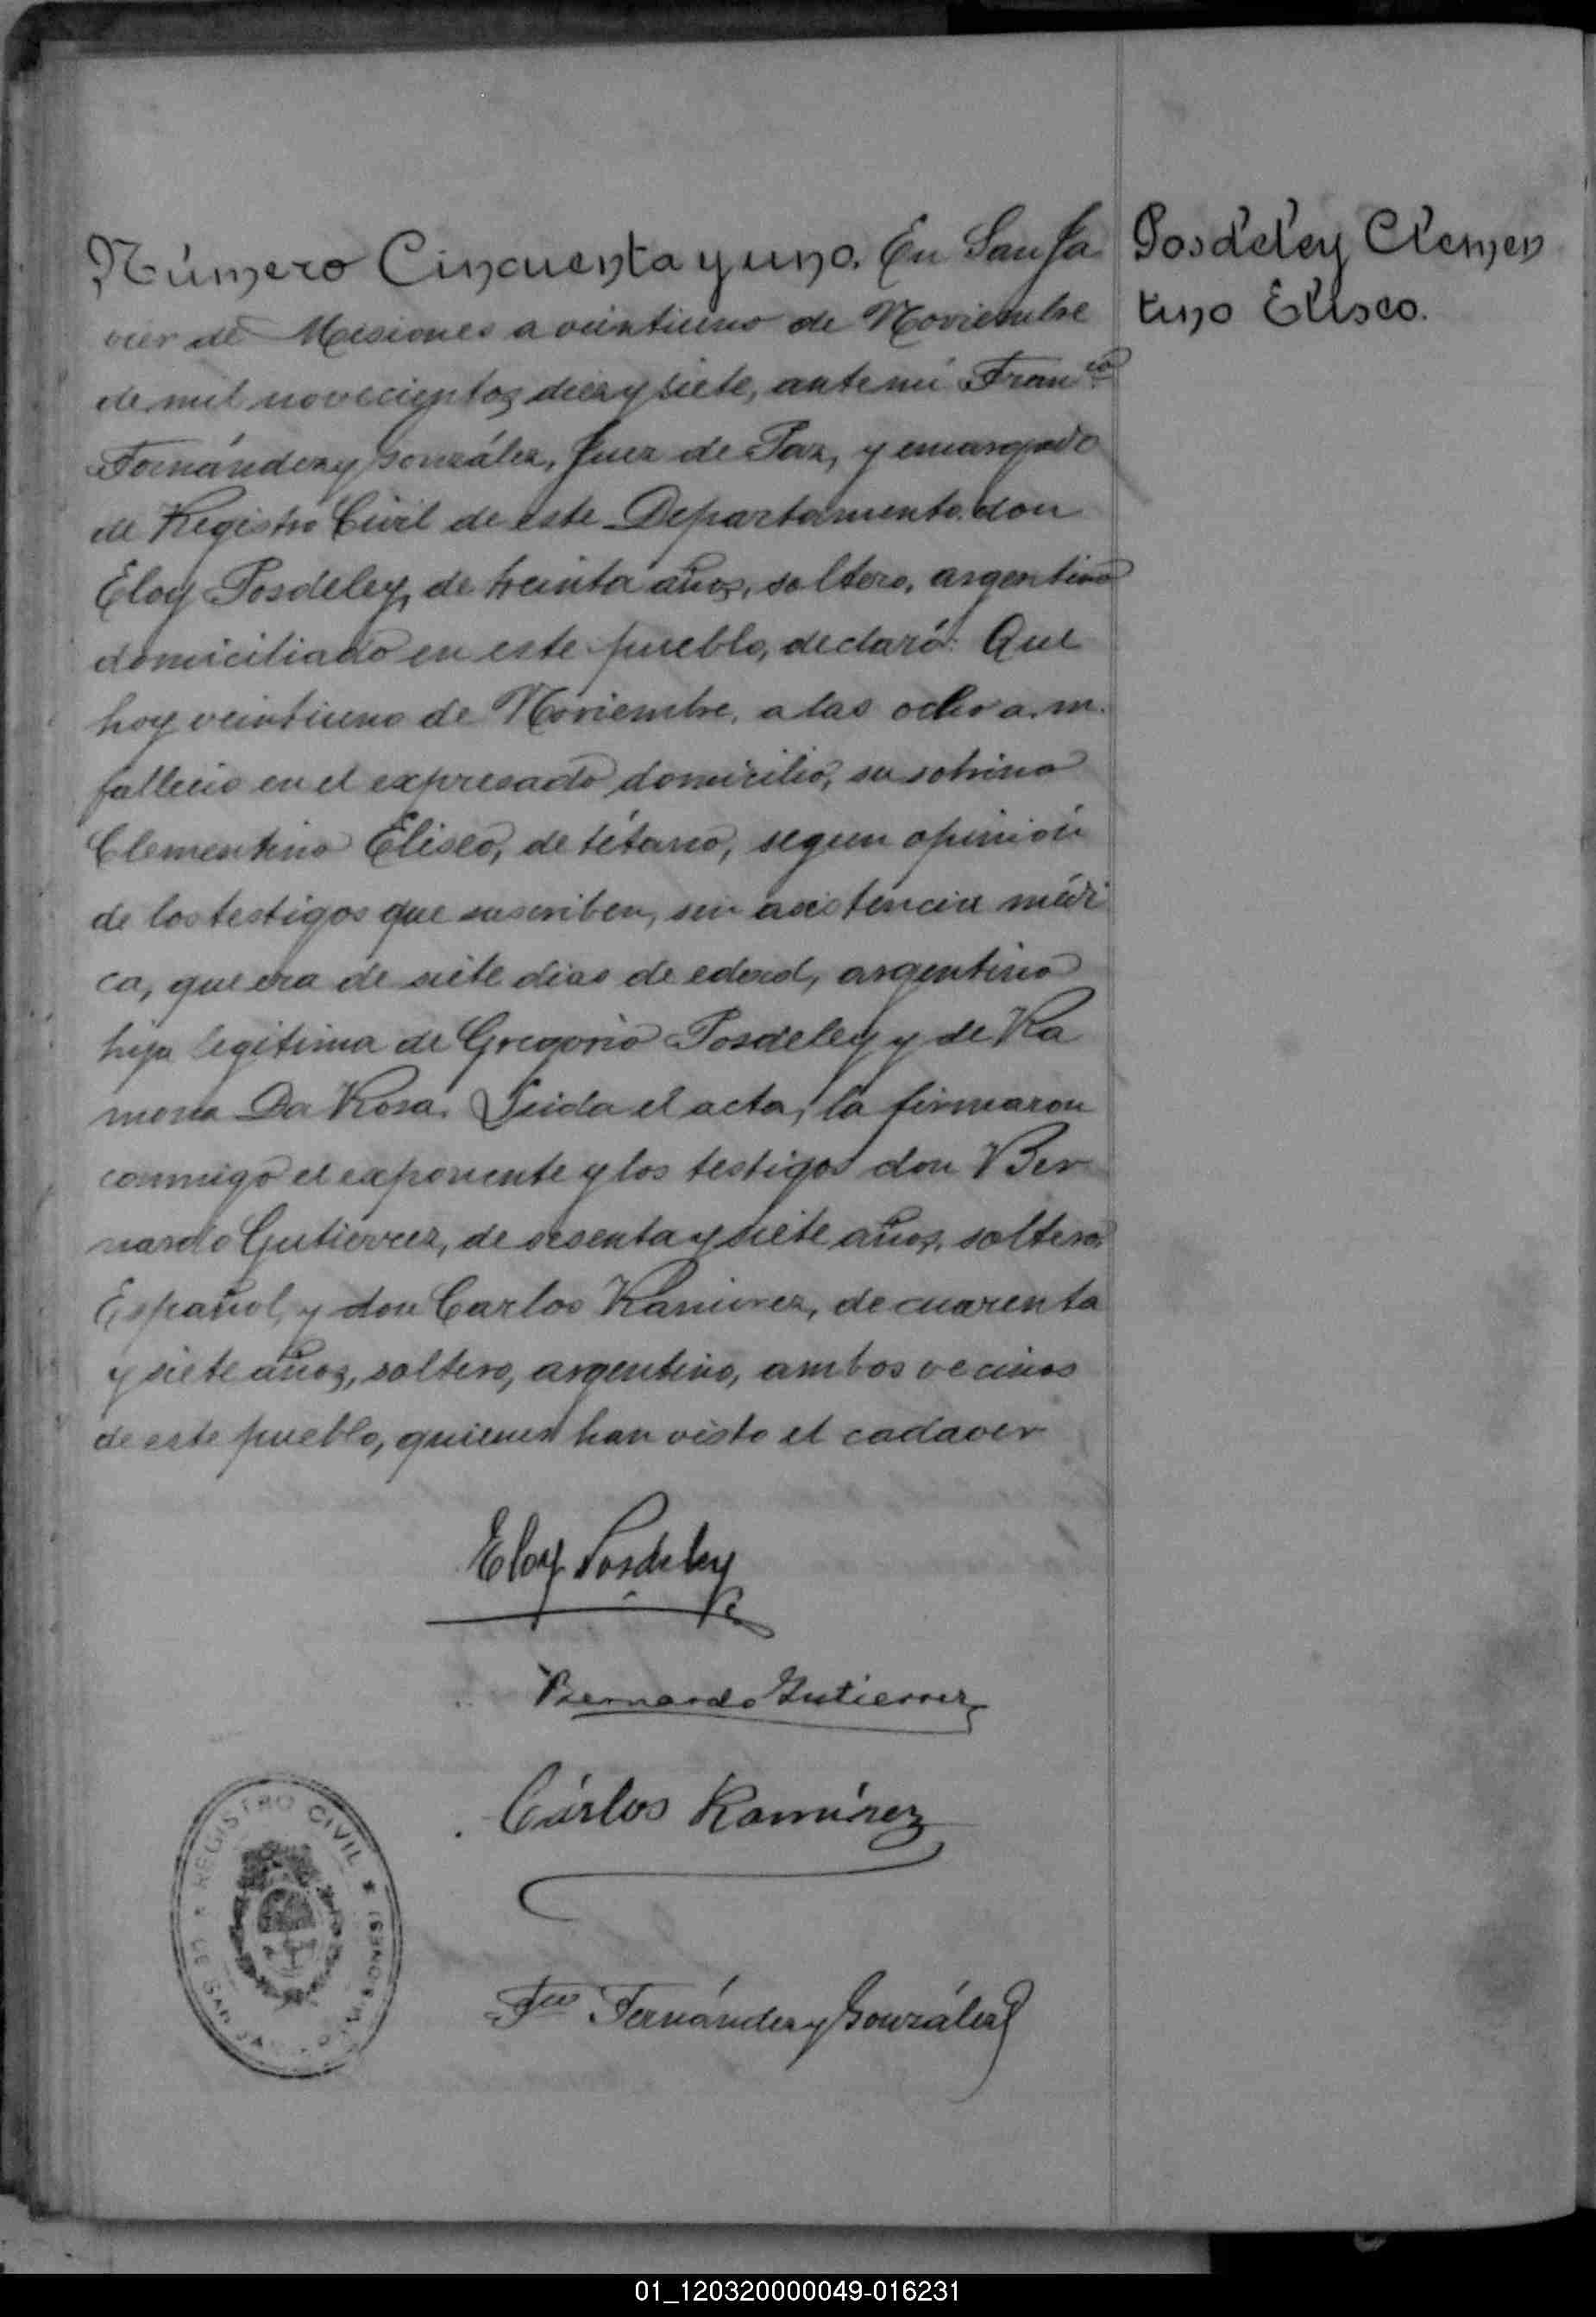 Número Cincuenta y uno. En San Ja
vier de Misiones a veintiuno de Noviembre
de mil novecientos diez y siete, ante mi Franco
Fernández y González, Juez de Paz, y encargado
de Registro Civil de este Departamento. don
Eloy Posdeley, de treinta años, soltero, argentino
domiciliado en este pueblo, declaró: Que
hoy veintiuno de Noviembre, a las ocho a.m.
fallecio en el expresado domicilio, su sobrino
Clementino Eliseo, de tétano, segun opinión
de los testigos que suscriben, sin asistencia médi
ca, que era de siete dias de edad, argentino
hijo legitima de Gregorio Posdeley y de Ra
mona Da Rosa. Leida el acta, la firmaron
conmigo el exponente y los testigos don Ber
nardo Gutierrez, de sesenta y siete años, soltero,
Español, y don Carlos Ramirez, de cuarenta
y siete años, soltero, argentino, ambos vecinos
de este pueblo, quienes han visto el cadaver
Posdeley Clemen
tino Eliseo.
Eloy Posdeley
Bernardo Gutierrez
Cárlos Ramírez
Fco Fernández y González
REGISTRO CIVIL
01_120320000049-016231